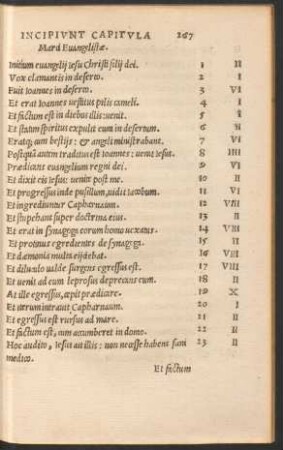 INCIPIVNT CAPITVLA 267
Marci Euangelistæ.
Initium euangelij iesu Christi filij dei. 1 II
Vox clamantis in deserto. 2 I
Fuit Ioannes in deserto. 3 VI
Et erat Ioannes uestitus pilis cameli. 4 I
Et factum est in diebus illis: uenit. 5 I
Et statim spiritus expulit eum in desertum. 6 II
Eratq; cum bestijs: & angeli ministrabant. 7 VI
Postquā autem traditus est Ioannes: uenit Iesus. 8 IIII
Prædicans euangelium regni dei. 9 VI
Et dixit eis Iesus: uenite post me. 10 II
Et progressus inde pusillum, uidit Iacobum. 11 VI
Et ingrediuntur Capharnaum. 12 VIII
Et stupebant super doctrina eius. 13 II
Et erat in synagoga eorum homo uexatus. 14 VIII
Et protinus egredientes de synagoga. 15 II
Et dæmonia multa eijciebat. 16 VIII
Et diluculo ualde surgens egressus est. 17 VIII
Et uenit ad eum leprosus deprecans eum. 18 II
At ille egressus, cœpit prædicare. 19 X
Et iterum intrauit Capharnaum. 20 I
Et egressus est rursus ad mare. 21 II
Et factum est, cum accumberet in domo. 22 II
Hoc audito, Iesus ait illis: non necesse habent sani 23 II
medico.
Et factum